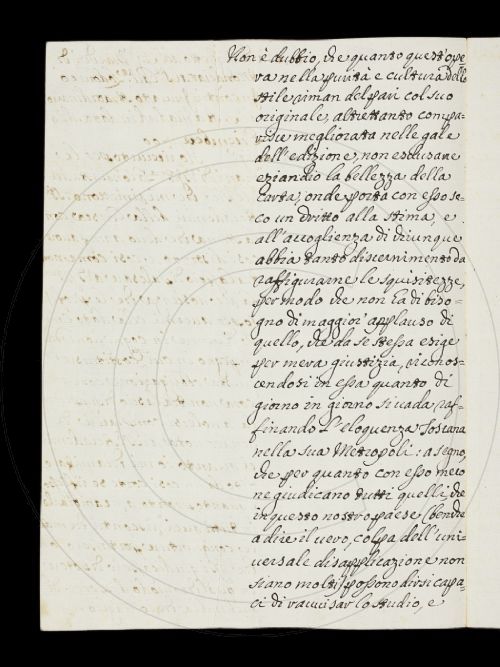 Non è dubbio, che quanto quest'ope
ra nella purità e cultura dello
stile riman del pari col suo
originale, altrettanto compa=
risce megliorata nelle gale
dell'edizione, non escusane
eziandio la bellezza della
carta, onde porta con esso se=
co un dritto alla stima, e
all'accoglienza di chiunque
abbia tanto discernimento da
raffigurarne le squisitezze,
per modo che non ha di biso=
gno di maggior applauso di
quello, che da se stessa esige
per mera giustizia, riconos=
cendosi in essa quanto di
giorno in giorno si vada raf=
finando l'eloquenza Toscana
nella sua Metropoli: a segno,
che per quanto con esso meco
ne giudicano tutti quelli, che
in questo nostro paese (benche
a dire il vero, colpa dell'uni=
versale disapplicazione non
siano molti) possono dirsi capa=
ci di ravvisar lo studio, e